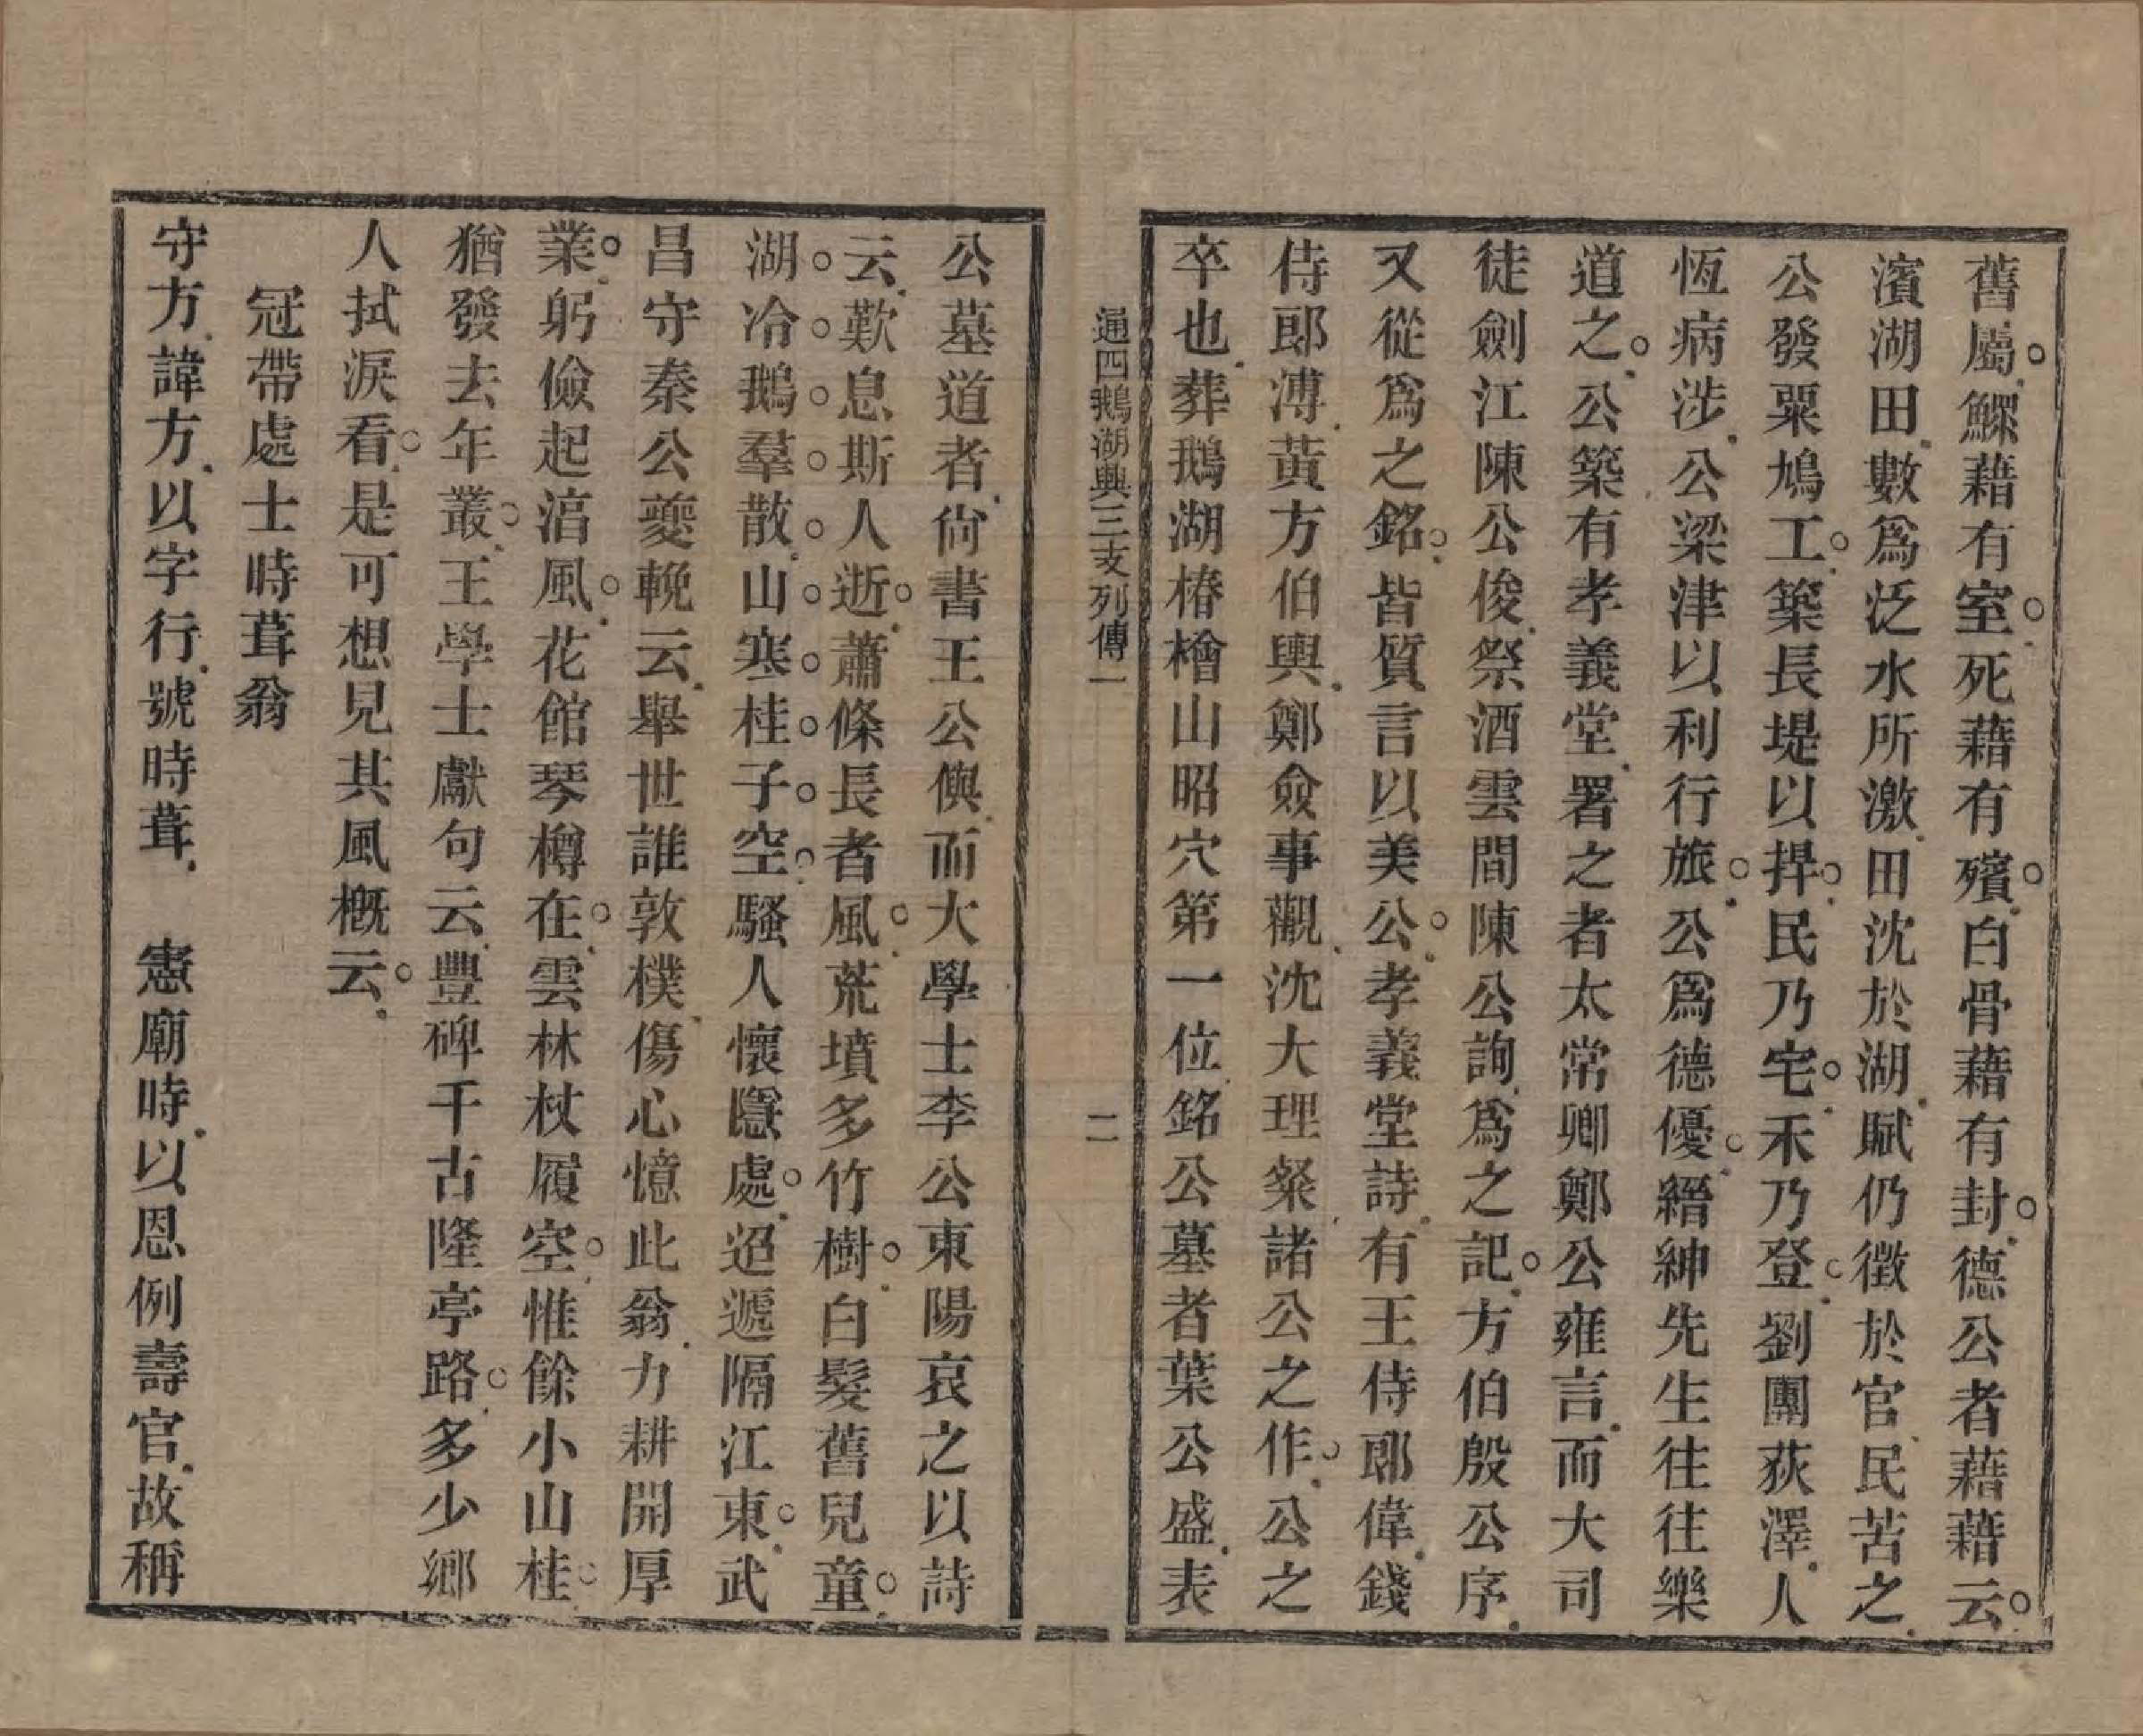 舊屬鰥藉有室死藉有殯白骨藉有封德公者藉藉云
濱湖田數爲泛水所激田沈於湖賦仍徵於官民苦之
公發粟鳩工築長堤以捍民乃宅禾乃登劉團荻澤人
恆病涉公梁津以利行旅公爲德優縉紳先生往往樂
道之公築有孝義堂署之者太常卿鄭公雍言而大司
徒劍江陳公俊祭酒雲間陳公詢爲之記方伯殷公序
又從爲之銘皆質言以美公孝義堂詩有王侍郎偉錢
侍郎溥黃方伯輿鄭僉事觀沈大理粲諸公之作公之
卒也葬鵝湖椿檜山昭穴第一位銘公墓者葉公盛表
通四鵝湖興三支列傳一
二
公墓道者尙書王公㒜而大學士李公東陽哀之以詩
云歎息斯人逝蕭條長者風荒墳多竹樹白髮舊兒童
湖冷鵝羣散山寒桂子空騷人懷隱處迢遞隔江東武
昌守秦公夔輓云舉世誰敦樸傷心憶此翁力耕開厚
業躬儉起滈風花館琴樽在雲林杖履空惟餘小山桂
猶發去年叢王學士獻句云豐碑千古隆亭路多少鄉
人拭淚看是可想見其風概云
冠帶處士時葺翁
守方諱方以字行號時葺 憲廟時以恩例壽官故稱